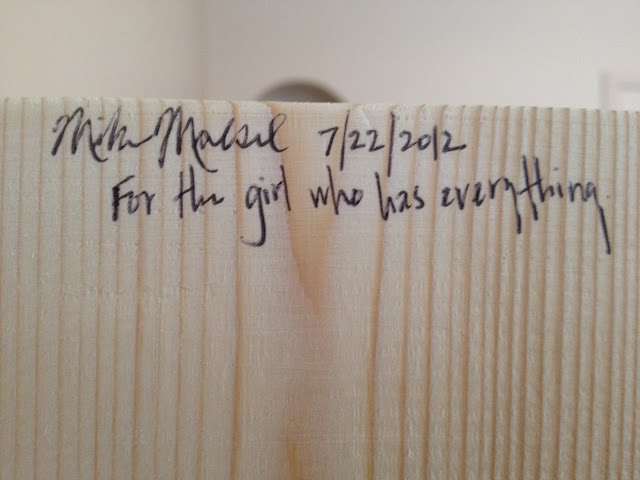 Mike Maesel 7/22/2012
For the girl who has everything.